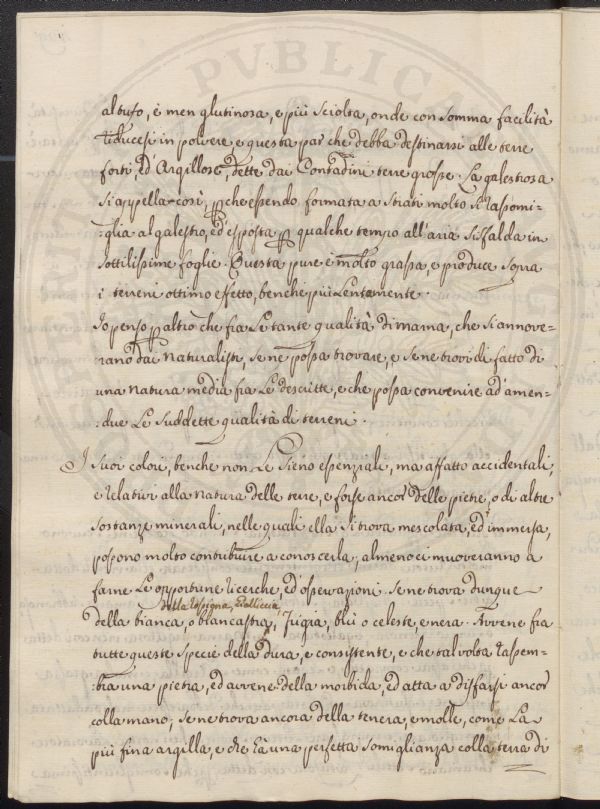 al tufo, è men glutinosa, e più sciolta, onde con somma facilità
riducesi in polvere e questa par che debba destinarsi alle terre
forti, ed' Argillose, dette dai Contadini terre grosse. La galestrosa
si appella così, perche essendo formata a strati molto si rasomi=
=glia al galestro, ed' esposta per qualche tempo all'aria si sfalda in
sottilissime foglie. Questa pure è molto grassa, e produce sopra
i terreni ottimo effetto, benche più lentamente.
Io penso per altro che fra le tante qualità di marna, che si annove=
rano dai Naturalisti, se ne possa trovare, e se ne trovi di fatto di
una natura media fra le descritte, e che possa convenire ad' amen=
=due le suddette qualità di terreni.
I suoi colori, benche non le sieno essenziali, ma affatto accidentali,
e relativi alla natura delle terre, e forse ancor' delle pietre, o di altre
sostanze minerali, nelle quali ella si trova mescolata, ed' immersa,
possono molto contribuire a conoscerla; almeno ci muoveranno a
farne le opportune ricerche, ed' osservazioni. Se ne trova dunque
della rossigna, gialliccia,
della bianca, o biancastra, grigia, blu o celeste, e nera. Avvene fra
tutte queste specie della dura, e consistente, e che talvolta rassem=
=bra una pietra, ed avvene della morbida, ed atta a disfarsi ancor
colla mano; se ne trova ancora della tenera, e molle, come la
più fina argilla, e che hà una perfetta somiglianza colla terra di
PVBLICA